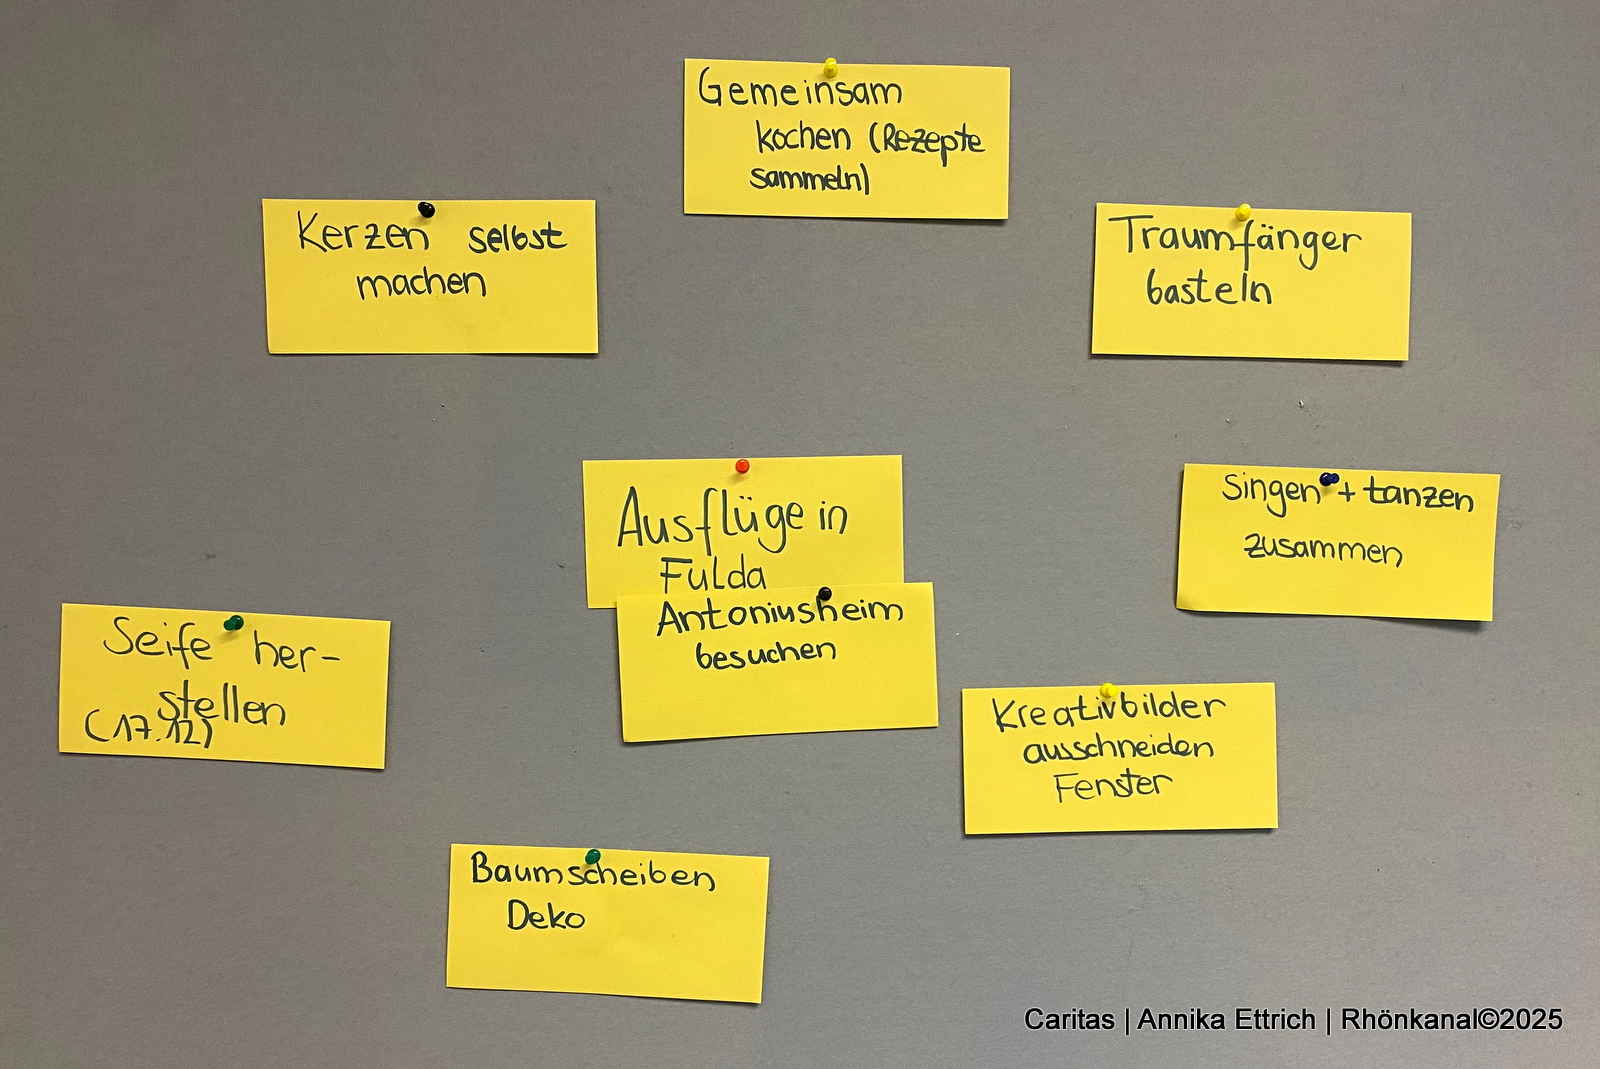 Gemeinsam
kochen (Rezepte
sammeln)
Kerzen selbst
machen
Traumfänger
basteln
Ausflüge in
Fulda
Antoniusheim
besuchen
Singen + tanzen
zusammen
Seife her-
stellen
(17.12)
Kreativbilder
ausschneiden
Fenster
Baumscheiben
Deko
Caritas | Annika Ettrich | Rhönkanal©2025